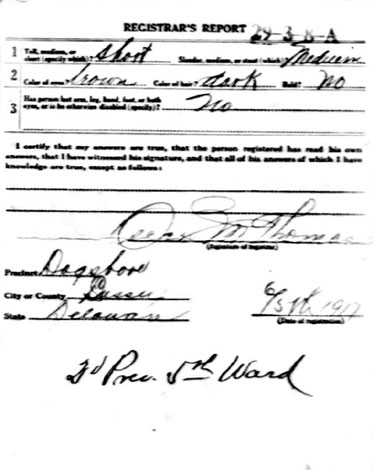 REGISTRAR'S REPORT 29-3-8-A
1 Tall, medium, or short (specify which)? Short Slender, medium, or stout (which)? Medium
2 Color of eyes? Brown Color of hair? dark Bald? No
3 Has person lost arm, leg, hand, foot, or both eyes, or is he otherwise disabled (specify)? No
I certify that my answers are true, that the person registered has read his own
answers, that I have witnessed his signature, and that all of his answers of which I
have knowledge are true, except as follows:
Thomas
(Signature of registrar)
Precinct Dagsboro
City or County Sussex
State Delaware
6/5th 1917
(Date of registration)
3d Prec. 5th Ward